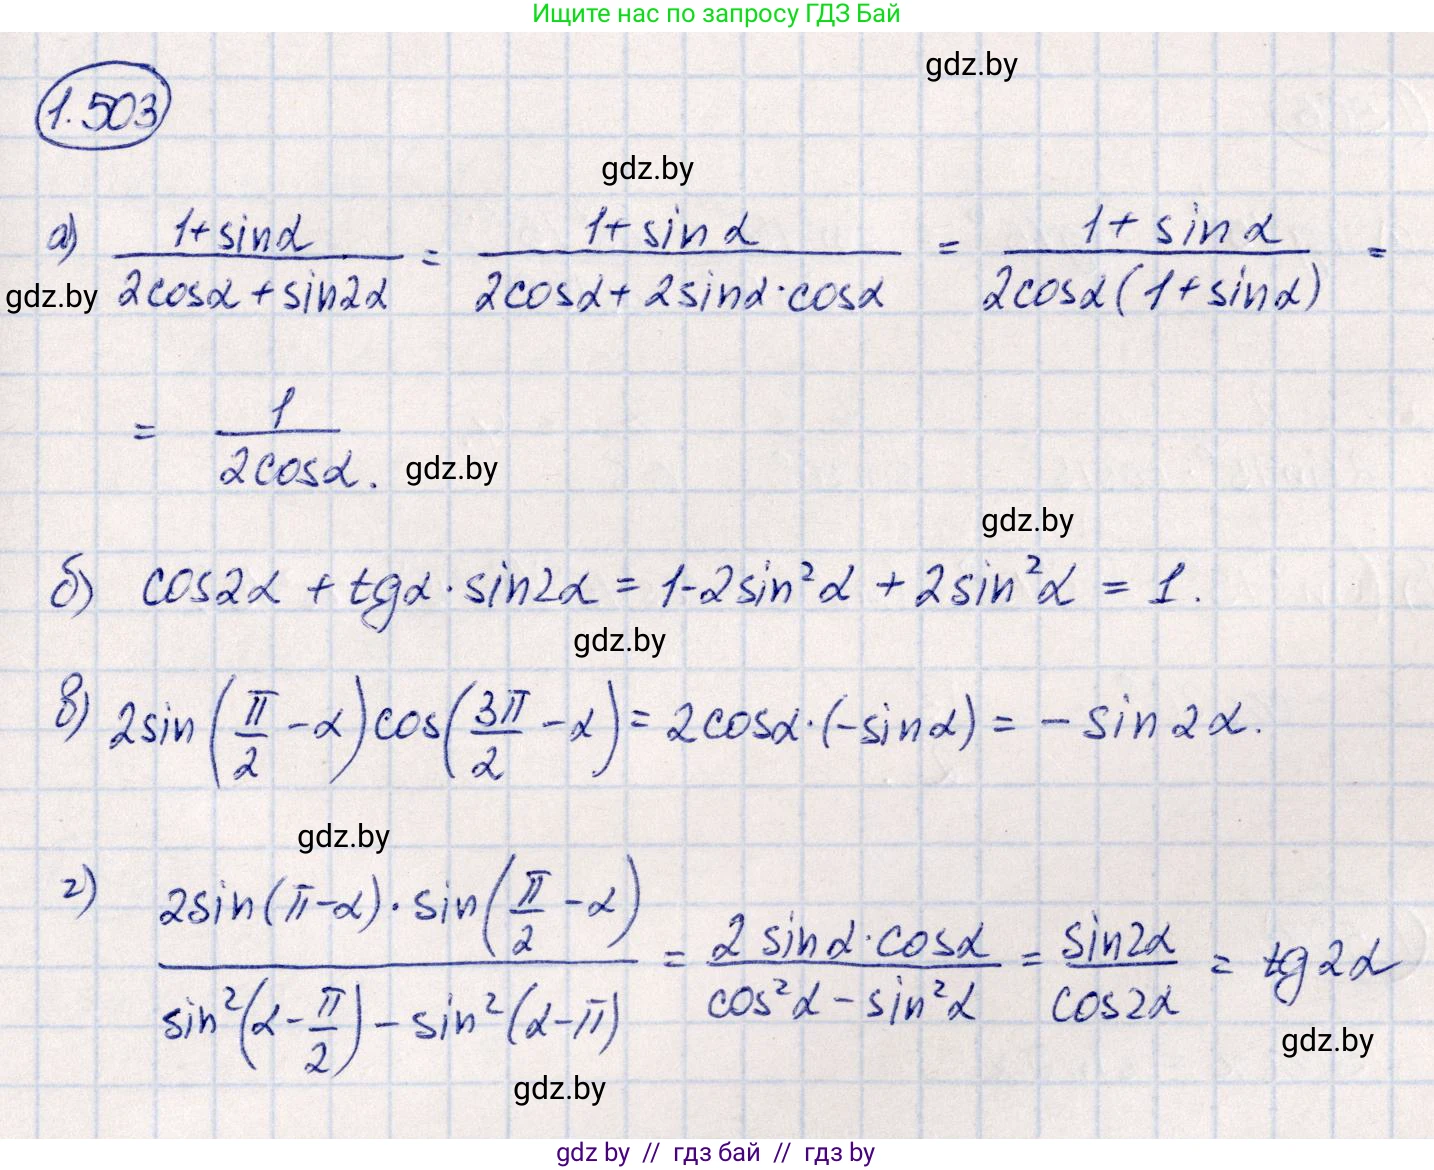 Ищите нас по запросу ГДЗ Бай
gdz.by
1.503
gdz.by
а) \frac{1+sinα}{2cosα+sin2α} = \frac{1+sinα}{2cosα+2sinα·cosα} = \frac{1+sinα}{2cosα(1+sinα)} =
gdz.by
= \frac{1}{2cosα}.
gdz.by
gdz.by
б) cos2α + tgα·sin2α = 1-2sin²α + 2sin²α = 1.
gdz.by
в) 2sin(\frac{π}{2}-α)cos(\frac{3π}{2}-α) = 2cosα·(-sinα) = -sin2α.
gdz.by
г) \frac{2sin(π-α)·sin(\frac{π}{2}-α)}{sin²(α-\frac{π}{2})-sin²(α-π)} = \frac{2sinα·cosα}{cos²α-sin²α} = \frac{sin2α}{cos2α} = tg2α
gdz.by
gdz.by
gdz by // гдз бай // гдз by